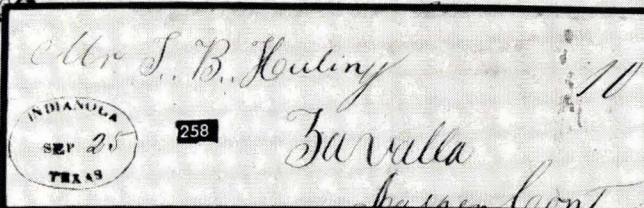 Mr T. B. Huling 10
INDIANOLA
SEP 25
TEXAS
258
Zavalla
Jasper Cont